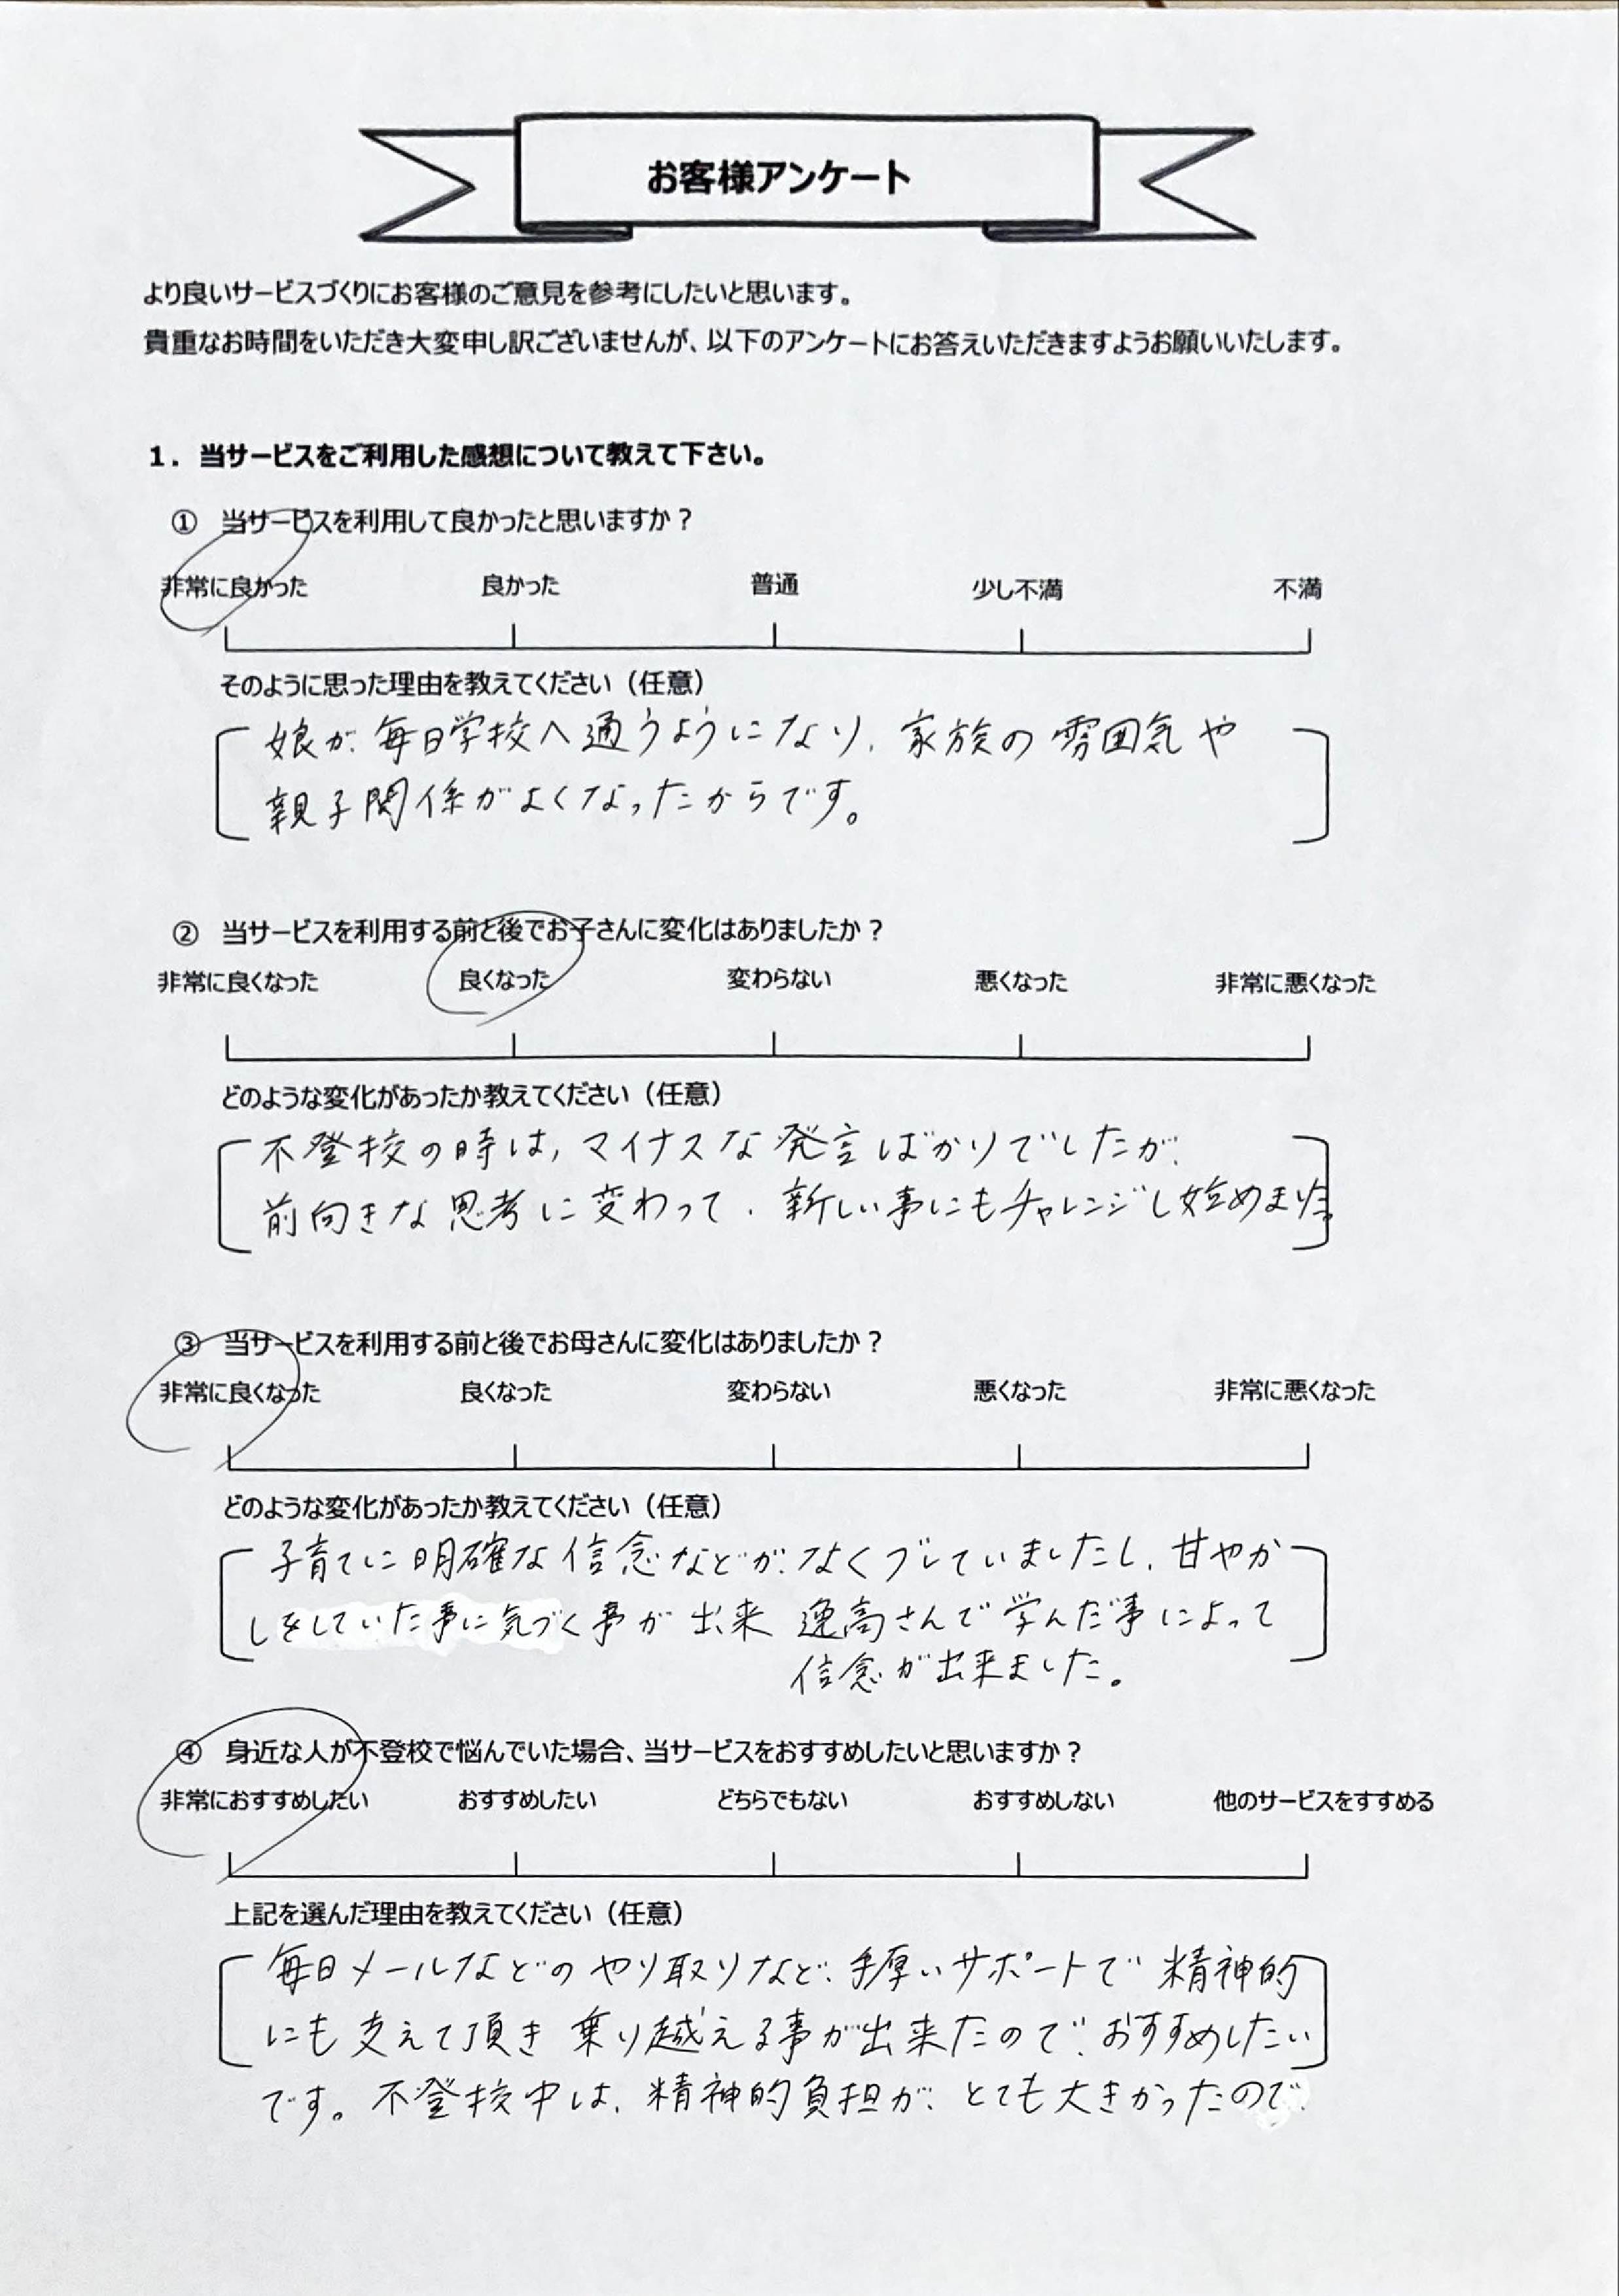 お客様アンケート
より良いサービスづくりにお客様のご意見を参考にしたいと思います。
貴重なお時間をいただき大変申し訳ございませんが、以下のアンケートにお答えいただきますようお願いいたします。
1．当サービスをご利用した感想について教えて下さい。
① 当サービスを利用して良かったと思いますか？
非常に良かった 良かった 普通 少し不満 不満
そのように思った理由を教えてください（任意）
娘が、毎日学校へ通うようになり、家族の雰囲気や
親子関係がよくなったからです。
② 当サービスを利用する前と後でお子さんに変化はありましたか？
非常に良くなった 良くなった 変わらない 悪くなった 非常に悪くなった
どのような変化があったか教えてください（任意）
不登校の時は、マイナスな発言ばかりでしたが、
前向きな思考に変わって、新しい事にもチャレンジし始めました。
③ 当サービスを利用する前と後でお母さんに変化はありましたか？
非常に良くなった 良くなった 変わらない 悪くなった 非常に悪くなった
どのような変化があったか教えてください（任意）
子育てに明確な信念などが、なくブレていましたし、甘やか
しをしていた事に気づく事が出来 逸高さんで学んだ事によって
信念が出来ました。
④ 身近な人が不登校で悩んでいた場合、当サービスをおすすめしたいと思いますか？
非常におすすめしたい おすすめしたい どちらでもない おすすめしない 他のサービスをすすめる
上記を選んだ理由を教えてください（任意）
毎日メールなどのやり取りなど、手厚いサポートで精神的
にも支えて頂き 乗り越える事が出来たので、おすすめしたい
です。不登校中は、精神的負担が、とても大きかったので、